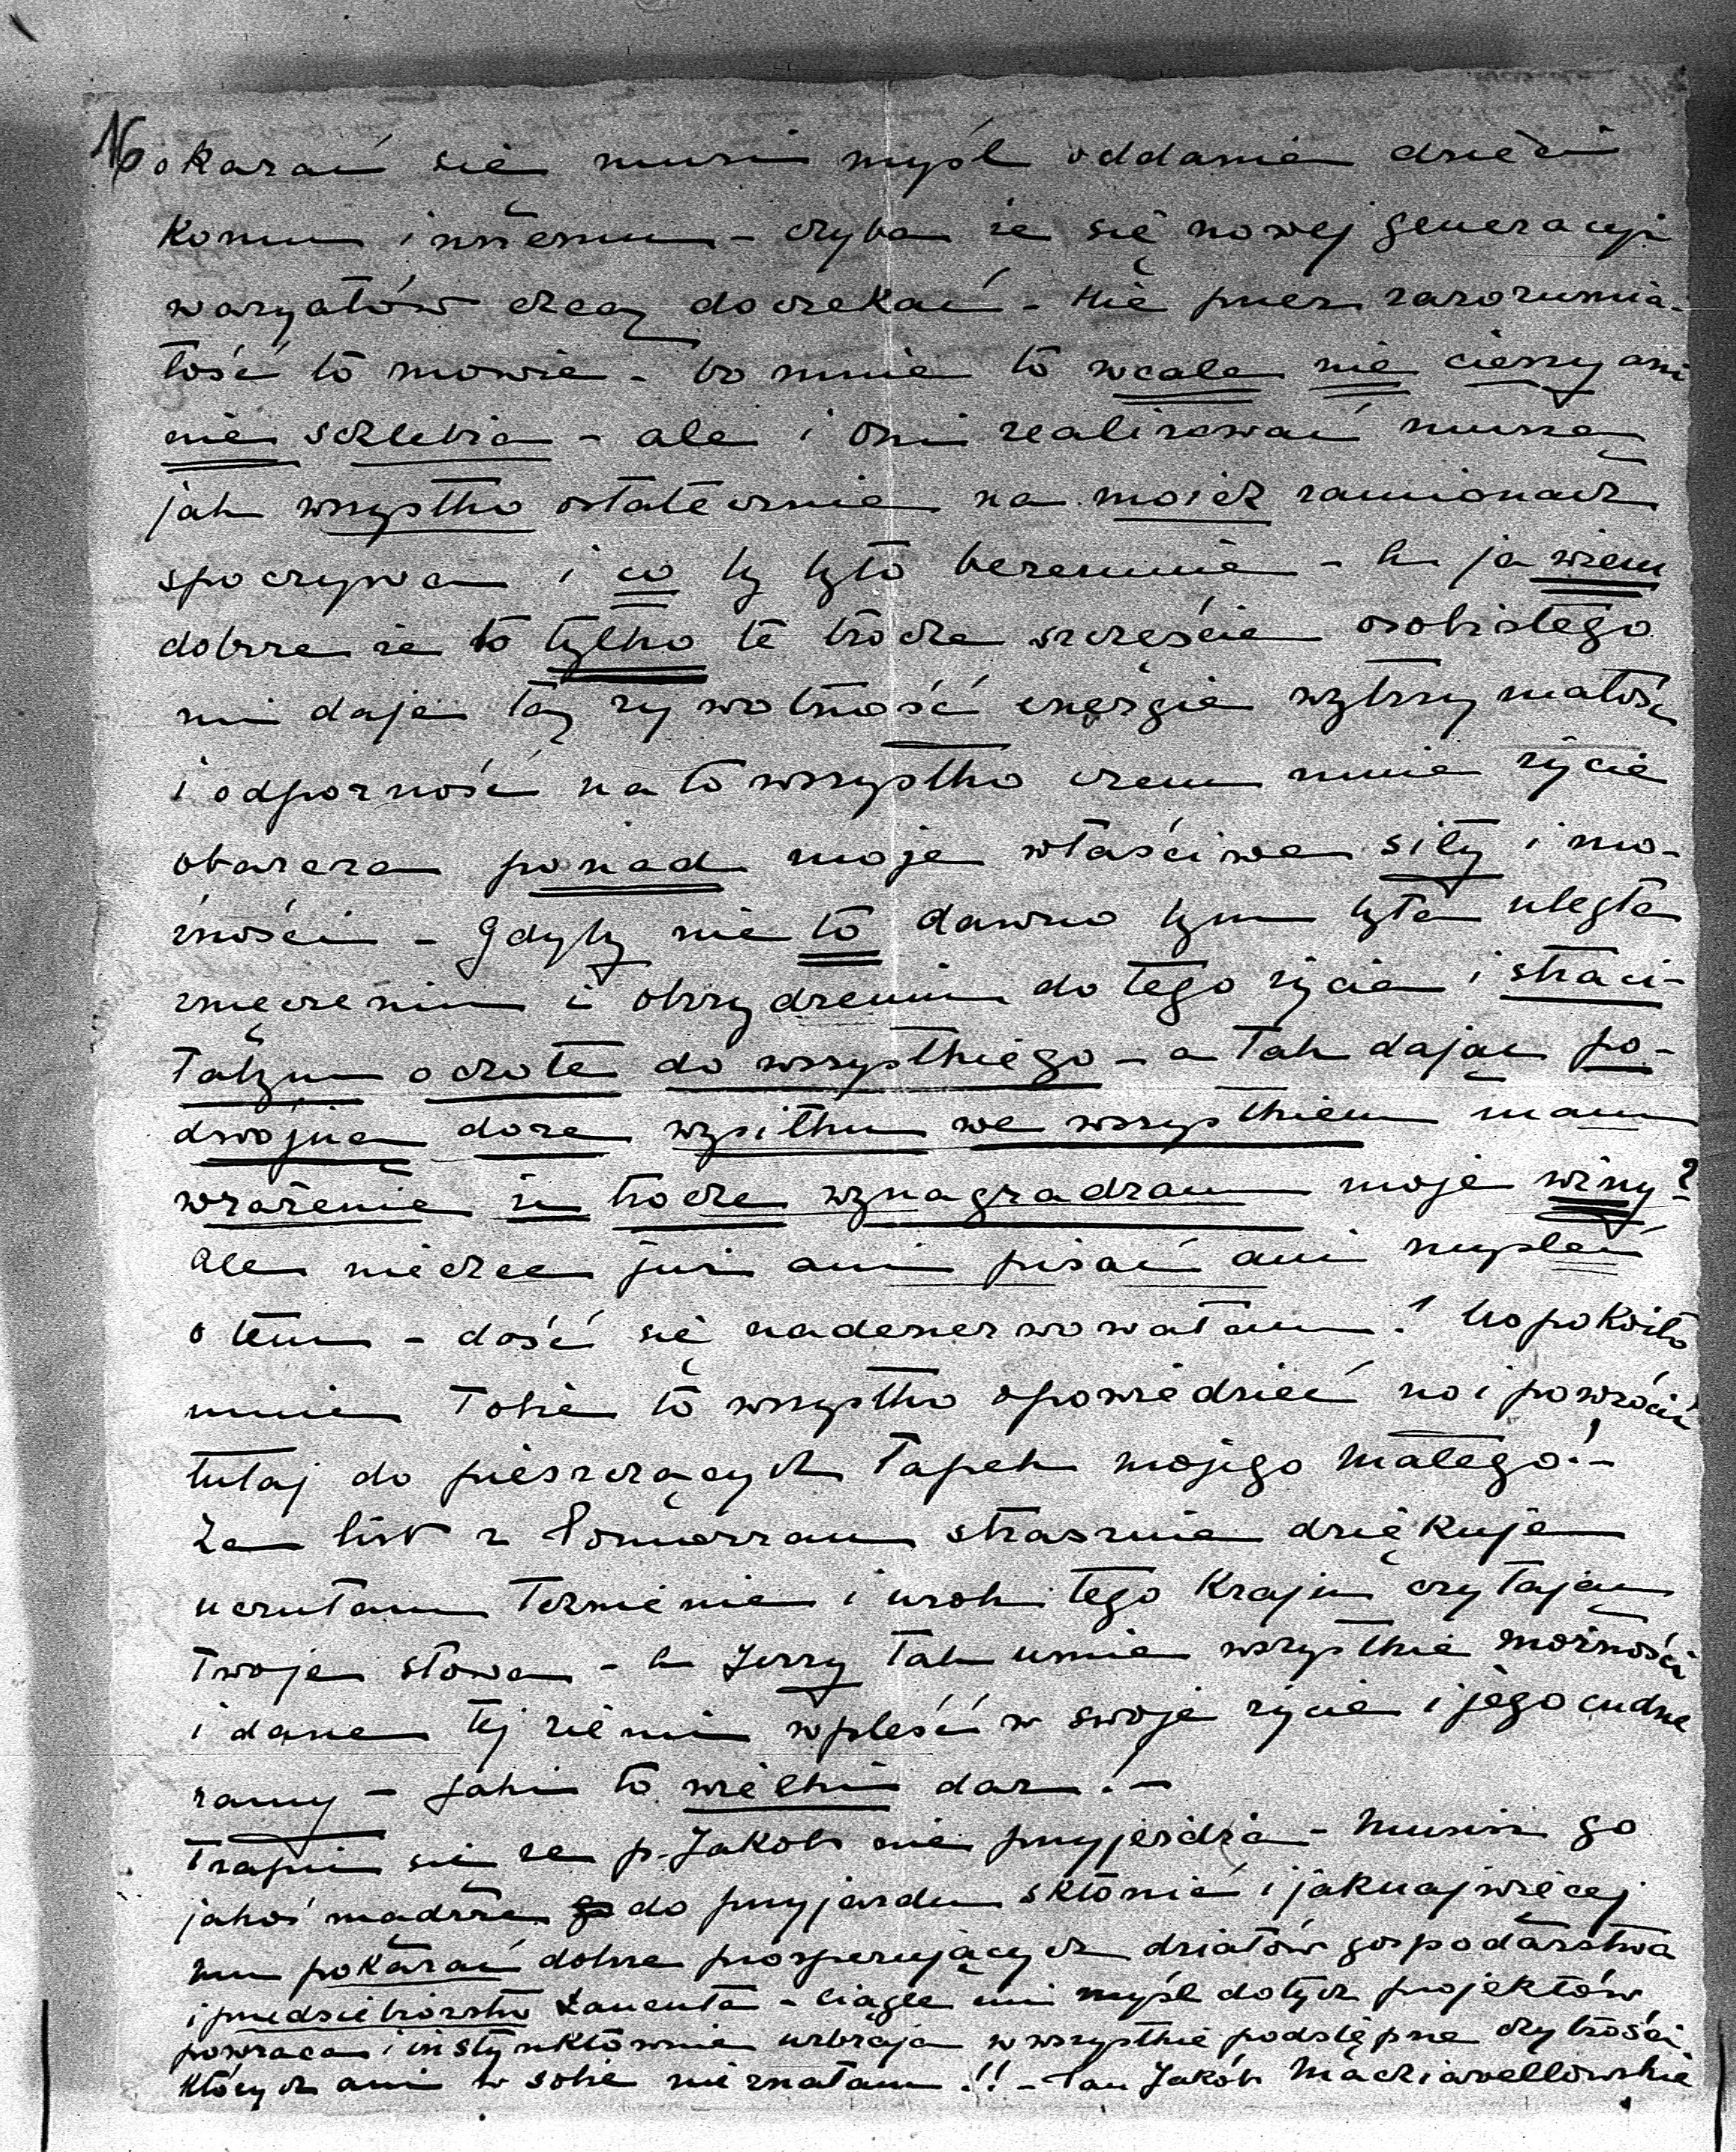 16 okazać się musi myśl oddania dzieci
komu innemu - chyba że się nowej generacyi
waryatów chcą doczekać - Nie przez zarozumia-
łość to mowię - bo mnie to wcale nie cieszy ani
nie schlebia - ale i oni realizować muszą
jak wszystko ostatecznie na moich ramionach
spoczywa i co by było bezemnie - a ja wiem
dobrze że to tylko te trochę szczęścia osobistego
mi daje tą żywotność energię wytrzymałość
i odporność na to wszystko czem mnie życie
obarcza ponad moje właściwe siły i mo-
żności - Gdyby nie to dawno bym była uległa
zmęczeniu i obrzydzeniu do tego życia i straci-
łabym ochotę do wszystkiego - a tak dając po-
dwójną dozę wysiłku we wszystkiem mam
wrażenie że trochę wynagradzam moje winy?
ale niechcę już ani pisać ani myśleć
o tem - dość się nadenerwowałam! Uspokoiło
mnie Tobie to wszystko opowiedzieć no i powrócić
tutaj do pieszczących łapek mojego małego! -
Za list z Pomorzan strasznie dziękuję
uczułam tchnienie i urok tego kraju czytając
Twoje słowa - a Jerzy tak umie wszystkie możności
i dane tej ziemi wpleść w swoje życie i jego cudne
ramy - jaki to wielki dar! -
Trapi się że p. Jakób nie przyjeżdża - Musisz go
jakoś mądrze do przyjazdu skłonić i jaknajwięcej
mu pokazać dobrze prosperujących działów gospodarstwa
i przedsiębiorstw Łańcuta - ciągle mi myśl dotych projektów
powraca i instynktownie uzbraja w wszystkie podstępne chytrości
których ani w sobie nie znałam!! - Pan Jakób Machiavellowskie